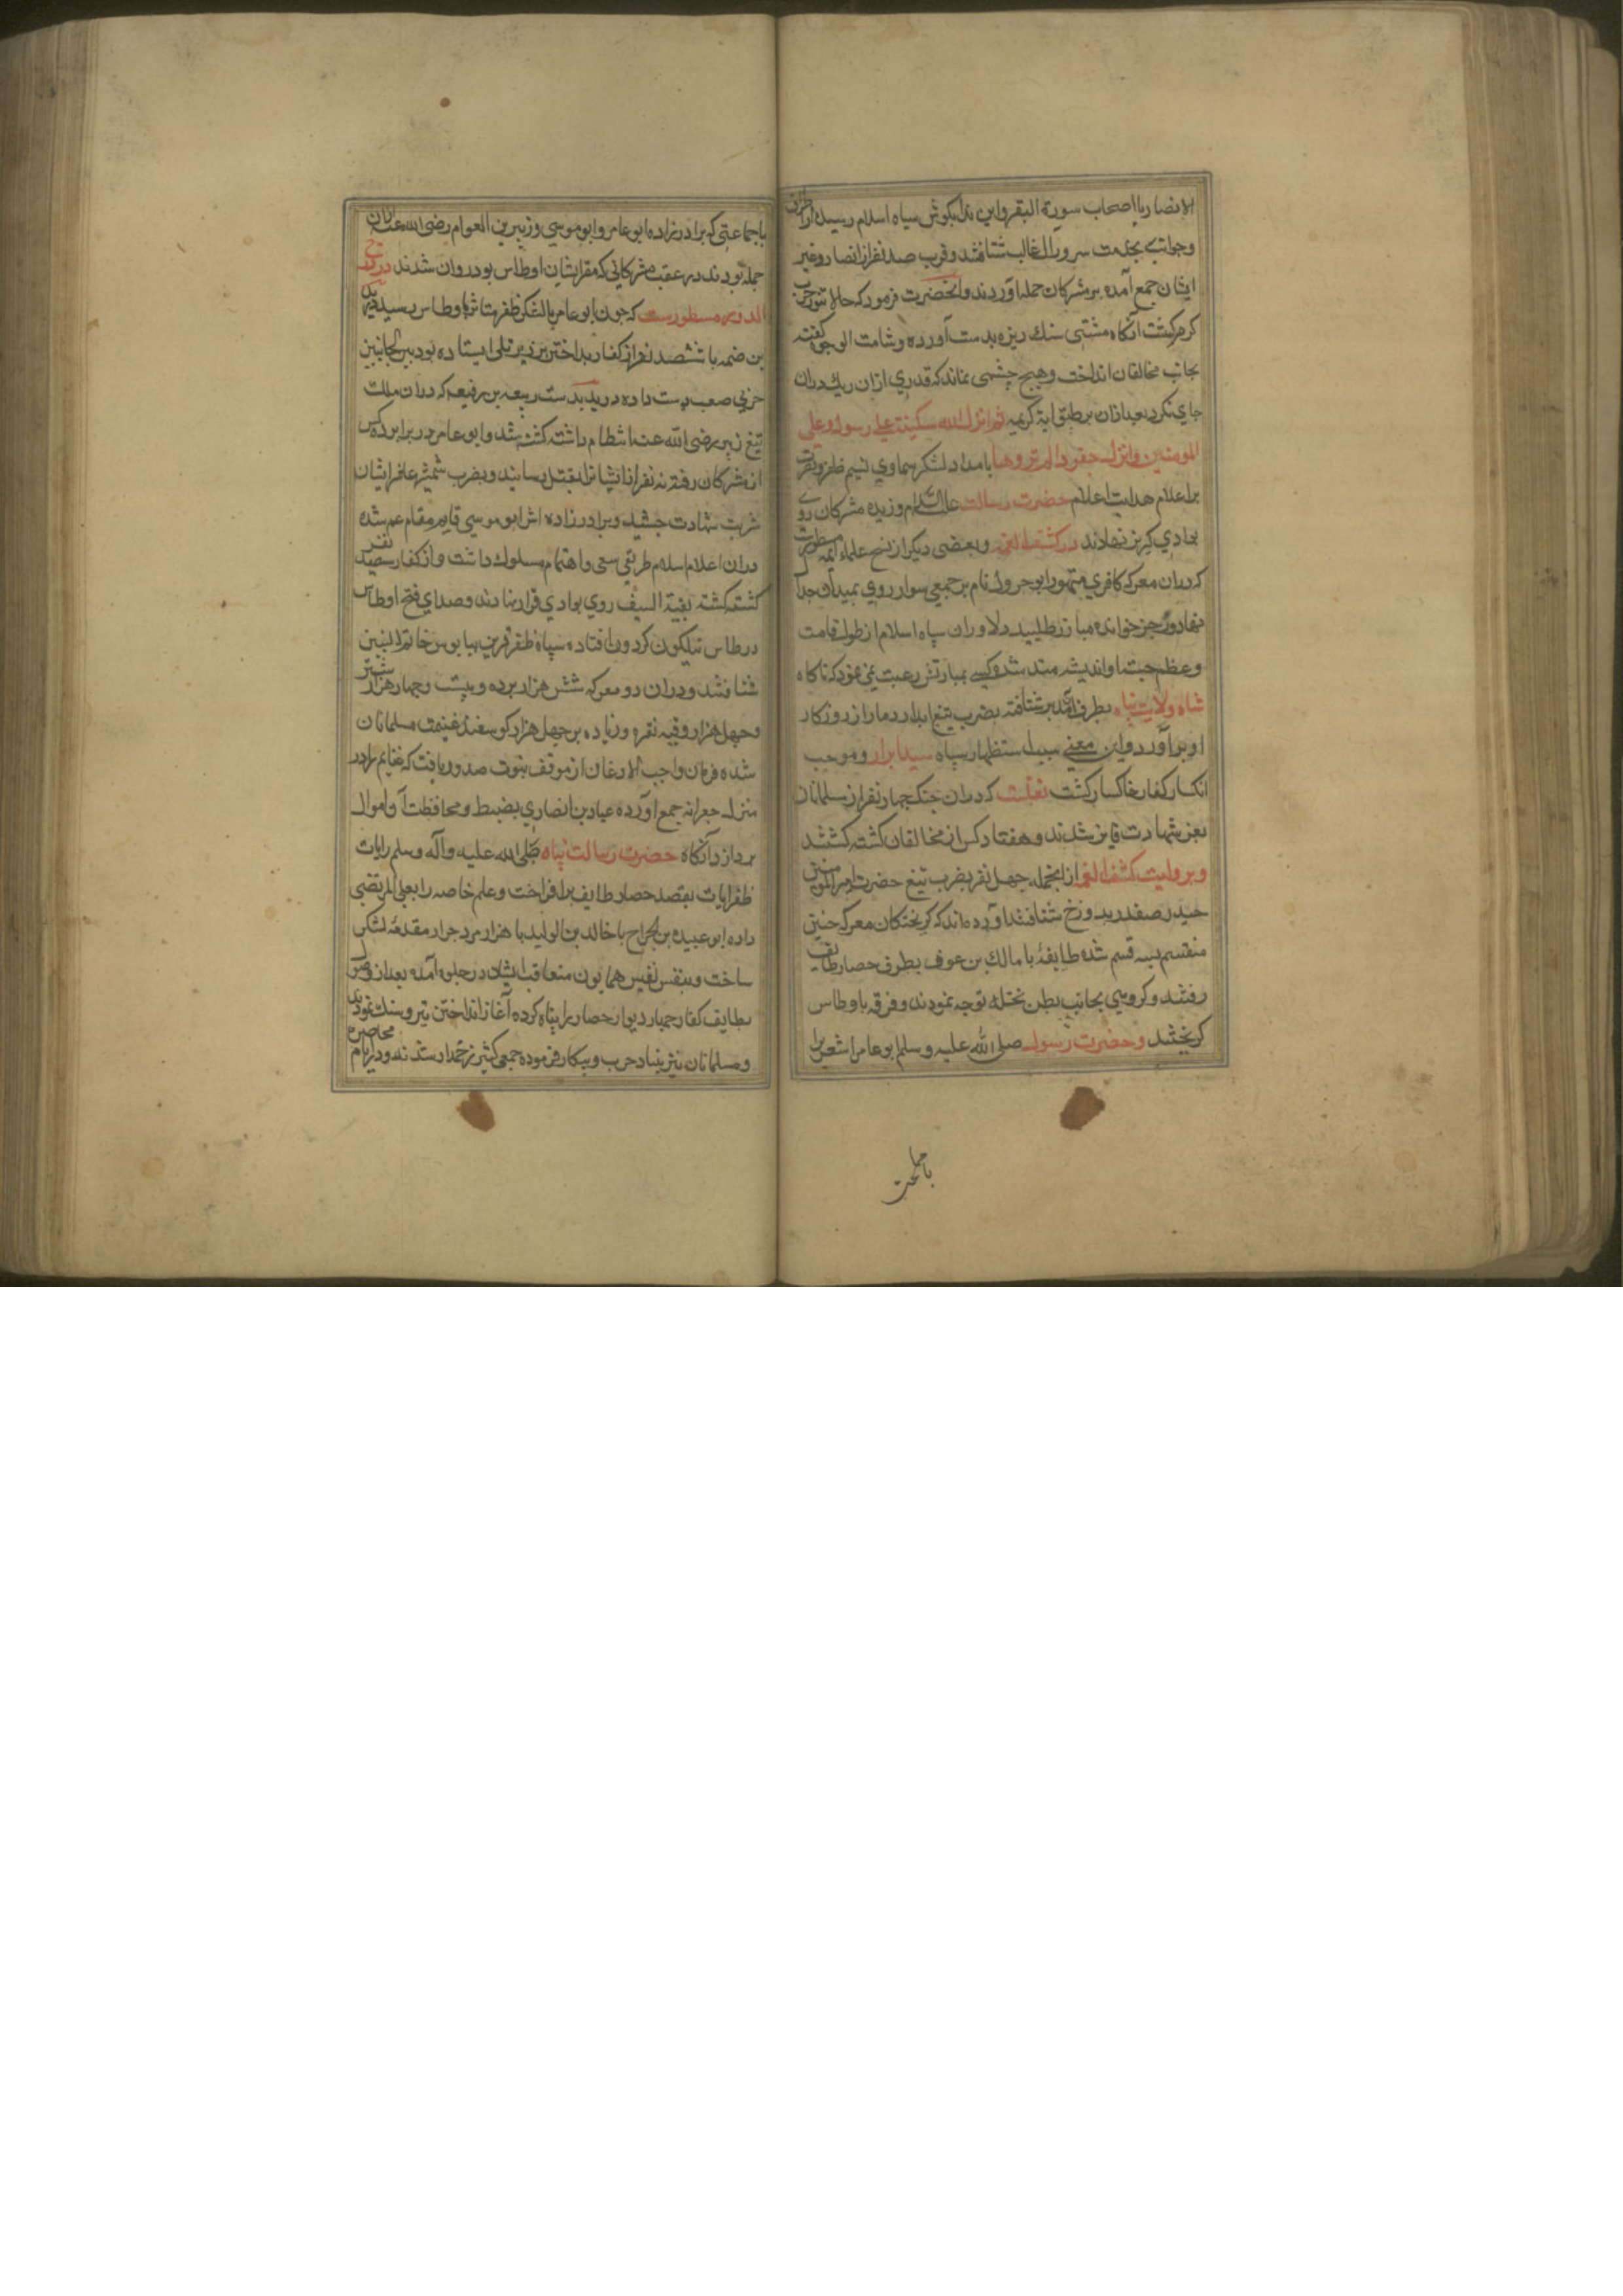 الانصار یا اصحاب سورة البقر و این ندا بکوش سپاه اسلام رسیده از اطراف
و جوانب بخدمت سرور ال غالب شتافتند و قرب صد نفر از انصار و غیر
ایشان جمع آمده بر مشرکان حمله اوردند و انحضرت فرمود که حالا تنور حرب
کرم کشت آنکاه مشتی سنك ریزه بدست آورده و شاهت الوجوه کفته
بجانب مخالفان انداخت و هیچ چشمی نماند که قدري ازان ریك دران
جاي نکرد بعد ازان بر طبق ایة کریمه ثم انزل الله سکینته علی رسوله و علی
المومنین و انزل جنودا لم تروها بامداد لشکر سماوي نسیم ظفر و نصرت
بر اعلام هدایت اعلام حضرت رسالت علیه السلام وزیده مشرکان روي
بوادي کریز نهادند در کشف الغمه و بعضی دیکر از نسخ علماء ایمه مسطورست
که دران معرکه کافري متهور ابو جرول نام بر جمعی سوار روي بمیدان جدال
نهاد و رجز خوانده مبارز طلبید دلاوران سپاه اسلام از طول قامت
و عظم جثه او اندیشه مند شده کسی بمبارزتش رغبت نمی نمود که ناکاه
شاه ولایت پناه بطرف آن کبر شتافته بضرب تیغ ابدار دمار از روزکار
او برآورد و این معنی سبب استظهار سپاه سید ابرار و موجب
انکسار کفار خاکسار کشت نقلست که دران جنك چهار نفر از مسلمانان
بعز شهادت فایز شدند و هفتاد کس از مخالفان کشته کشتند
و بروایت کشف الغمه ازانجمله چهل نفر بضرب تیغ حضرت امیر المومنین
حیدر صفدر بدوزخ شتافتند اورده اند که کریختکان معرکه حنین
منقسم بسه قسم شده طایفۀ با مالك بن عوف بطرف حصار طایف
رفتند و کروهی بجانب بطن نخله توجه نمودند و فرقه باوطاس
کریختند و حضرت رسول صلی الله علیه و سلم ابو عامر اشعری را
با جماعتی که برادرزاده ابو عامر و ابو موسی و زبیر بن العوام رضی الله عنه ازان
جمله بودند در عقب مشرکانی که مقر ایشان اوطاس بود روان شدند در درج
الدرر مسطورست که چون ابو عامر با لشکر ظفر متاثر باوطاس رسید درید
بن ضمه با ششصد نفر از کفار بد اختر بر زبر تلی ایستاده بود بین الجانبین
حربی صعب دست داده درید بدست ربیعه بن رفیعه که دران ملت
تیغ زبیر رضی الله عنه انتظام داشته کشته شد و ابو عامر در برابر ده کس
از مشرکان رفته نه نفر از ایشانرا بقتل رسانید و بضرب شمشیر عاشر ایشان
شربت شهادت چشید و برادرزاده اش ابو موسی قایم مقام عم شده
دران اعلام اسلام طریق سعی و اهتمام مسلوك داشت و از کفار سیصد نفر
کشته کشته بقیة السیف روي بوادي فرار نهادند و صداي فتح اوطاس
در طاس نیلکون کردون افتاده سپاه ظفر قرین بپابوس خاتم النبیین
شتافتند و دران دو معرکه شش هزار برده و بیست و چهار هزار شتر
و چهل هزار وقیه نقره و زیاده بر چهل هزار کوسفند غنیمت مسلمانان
شده فرمان واجب الاذعان از موقف نبوت صدور یافت که غنایم را در
منزل جعرانه جمع اورده عباد بن انصاري بضبط و محافظت آن اموال
پردازد آنکاه حضرت رسالت پناه صلی الله علیه و آله و سلم رایات
ظفر ایات بقصد حصار طایف برافراخت و علم خاصه را بعلی المرتضی
داده ابو عبیده بن الجراح با خالد بن الولید با هزار مرد جرار مقدمۀ لشکر
ساخت و بنفس نفیس همایون متعاقب ایشان در جلوه آمده بعد از وصول
بطایف کفار جبار دیوار حصار را پناه کرده آغاز انداختن تیر و سنك نمودند
و مسلمانان نیز بنیاد حرب و پیکار فرموده جمعی کثیر زخمدار شدند و در ایام محاصره
با جماعت